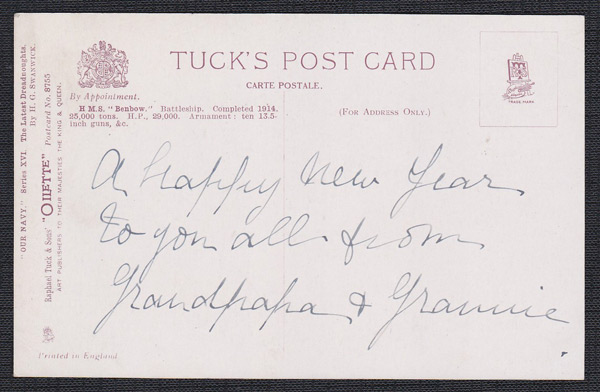 TUCK'S POST CARD
CARTE POSTALE.
By Appointment.
H.M.S. "Benbow." Battleship. Completed 1914.
25,000 tons. H.P., 29,000. Armament: ten 13.5-
inch guns, &c.
(For Address Only.)
TRADE MARK
"OUR NAVY." Series XVI. The Latest Dreadnoughts.
By H. G. SWANWICK.
Raphael Tuck & Sons' "OILETTE" Postcard No. 8755
ART PUBLISHERS TO THEIR MAJESTIES THE KING & QUEEN.
A happy New Year
to you all from
Grandpapa & Grannie
Printed in England